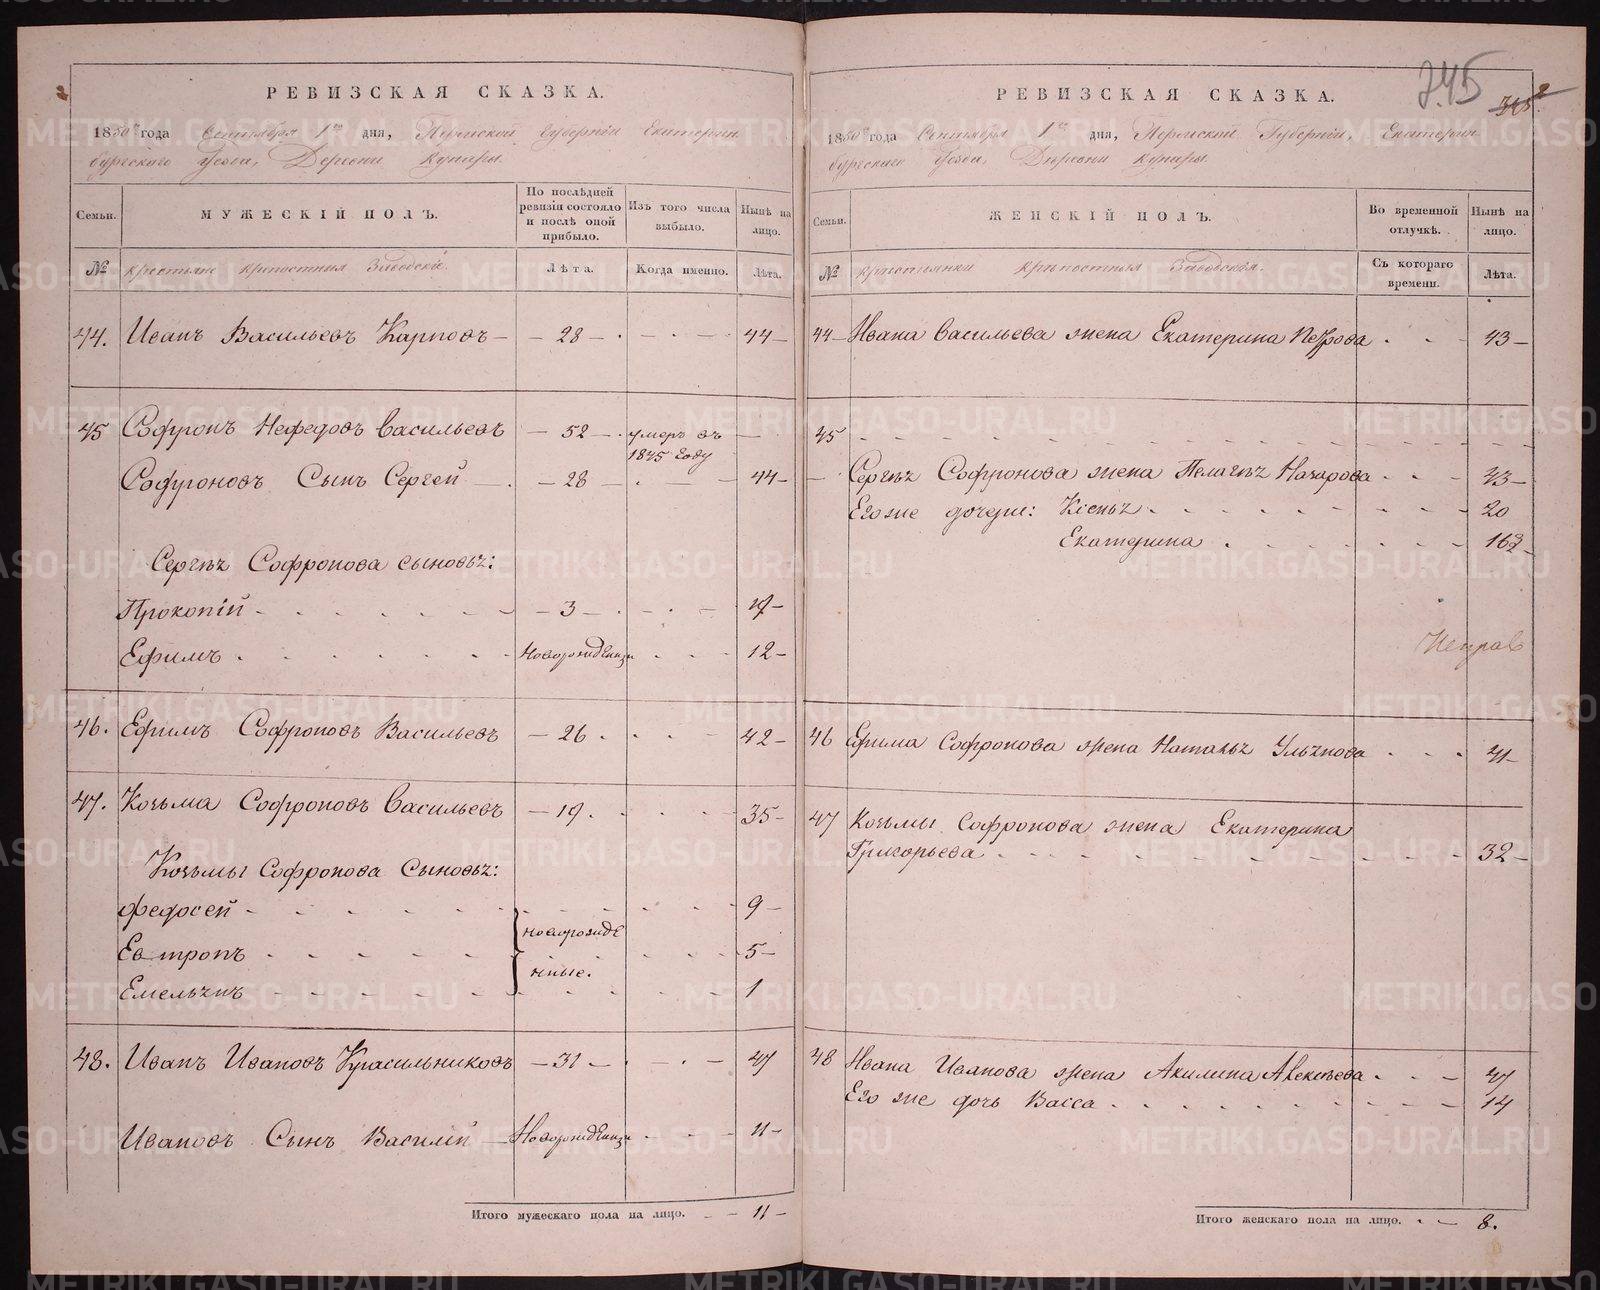 РЕВИЗСКАЯ СКАЗКА.
1850 года Сентября 1го дня, Пермской Губернiи Екатерин
бургскаго Уезда, Деревни Кунары.
Семьи.
МУЖЕСКIЙ ПОЛЪ.
По послѣдней ревизiи состояло и послѣ оной прибыло.
Изъ того числа выбыло.
Нынѣ на лицо.
№
крестьяне крепостныя Заводскiе.
Лѣта.
Когда именно.
Лѣта.
44. Иванъ Васильевъ Карповъ – 28 – 44
45 Софронъ Нефедовъ Васильевъ – 52 – умеръ въ 1845 году —
Софроновъ Сынъ Сергей – 28 – 44
Сергѣя Софронова сыновья:
Прокопiй – 3 – 19
Ефимъ Новорожденный 12
46. Ефимъ Софроновъ Васильевъ – 26 42
47. Козьма Софроновъ Васильевъ – 19 35
Козьмы Софронова Сыновья:
Федосей 9
новорожде
Евтропъ 5
нные.
Емельянъ 1
48. Иванъ Ивановъ Красильниковъ – 31 – 47
Ивановъ Сынъ Василiй Новорожденный 11
Итого мужескаго пола на лицо. – 11 –
2
745
РЕВИЗСКАЯ СКАЗКА.
1850 года Сентября 1го дня, Пермской Губернiи, Екатерин
бургскаго Уезда, Деревни Кунары.
Семьи.
ЖЕНСКIЙ ПОЛЪ.
Во временной отлучкѣ.
Нынѣ на лицо.
№
крестьянки крѣпостныя Заводскiя.
Съ котораго времени.
Лѣта.
44 Ивана Васильева жена Екатерина Петрова 43
45
Сергѣя Софронова жена Пелагѣя Назарова 43
Его же дочери: Ксенья 20
Екатерина 16
46 Ефима Софронова жена Наталья Ульянова 41
47 Козьмы Софронова жена Екатерина
Григорьева 32
48 Ивана Иванова жена Акилина Алексѣева 47
Его же дочь Васса 14
Итого женскаго пола на лицо. – 8.
METRIKI.GASO-URAL.RU